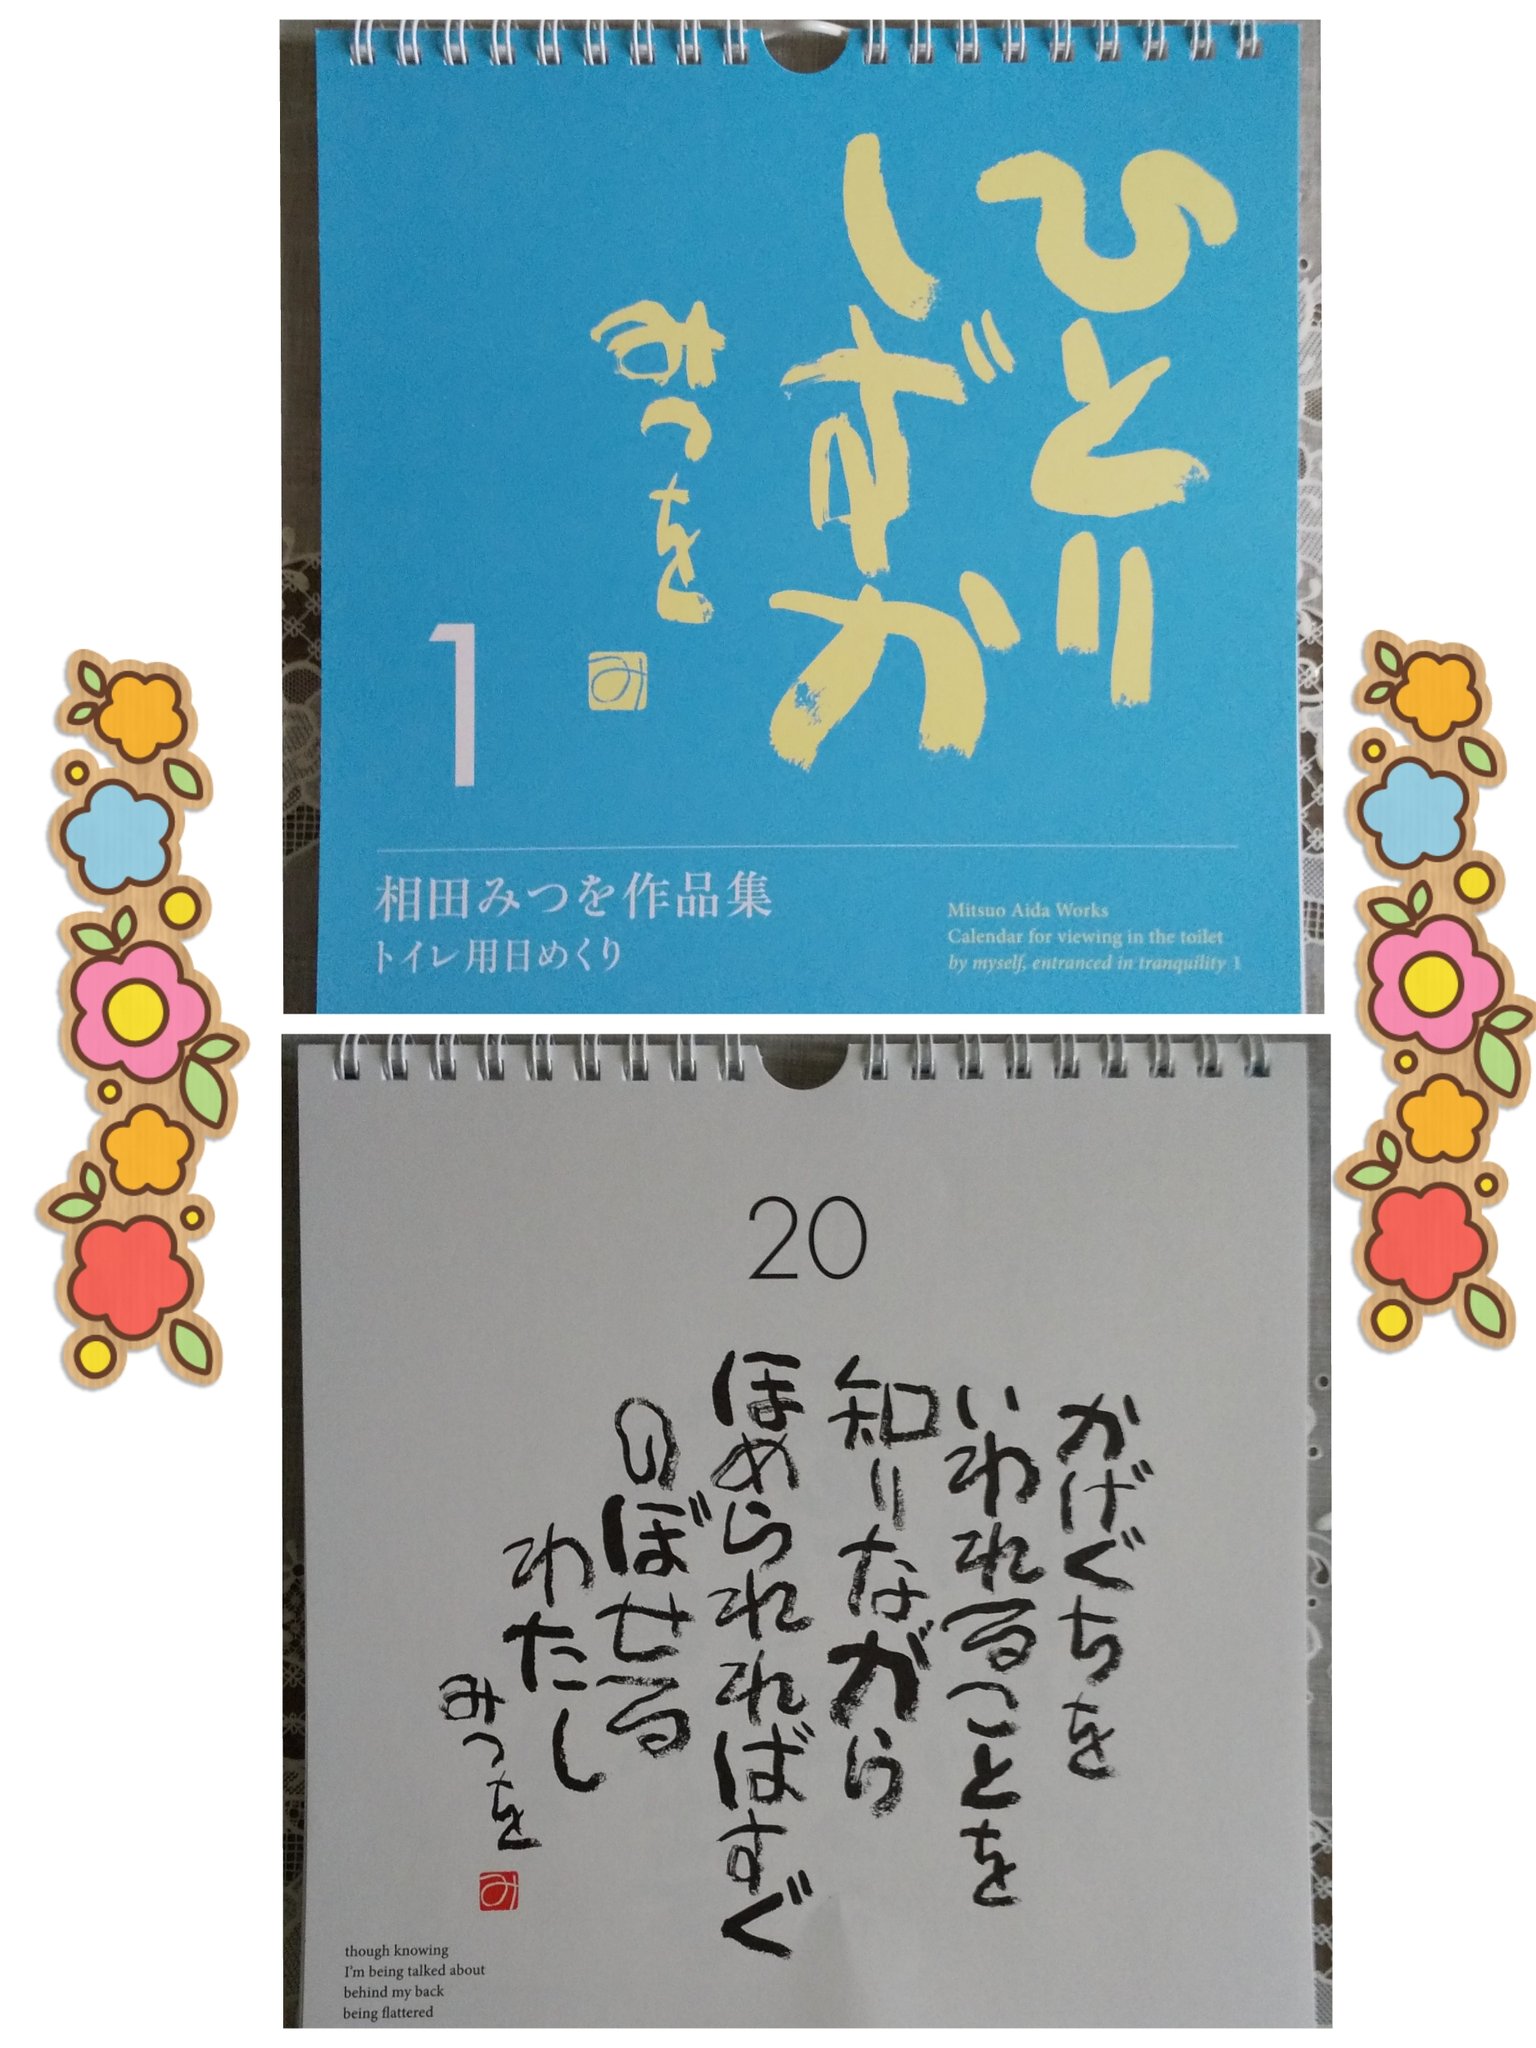 ひとり
しずか
みつを
み
1
相田みつを作品集
トイレ用日めくり
Mitsuo Aida Works
Calendar for viewing in the toilet
by myself, entranced in tranquility 1
20
かげぐちを
いわれることを
知りながら
ほめられればすぐ
のぼせる
わたし
みつを
み
though knowing
I'm being talked about
behind my back
being flattered